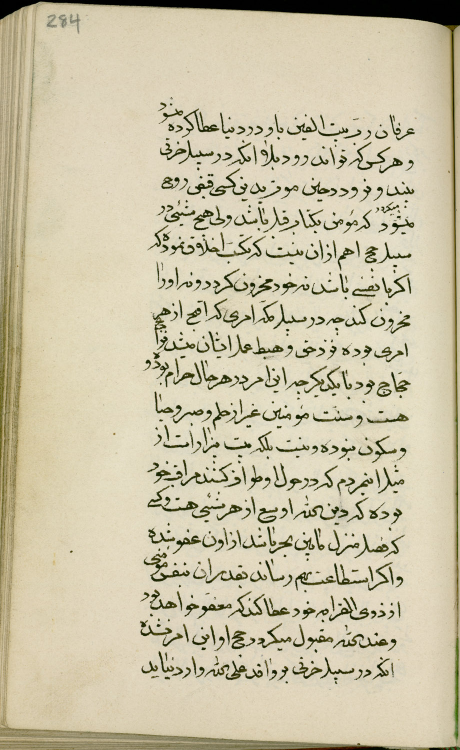 284
عرفان رتبت الفین باو در دنیا عطا کرده نشود
و هر کس که تواند رود بلاد آنکه در سبیل حزنی
بیند و نزد در حین موت بدین کسی قبض روح
نمیشود میگردد که مؤمن بکتاب قرار باشد ولی هیچ شیئی در
سبیل حج اهم از آن نیست که کسب اخلاق نموده که
اگر با نفسی باشد نه خود محزون گردد و نه او را
محزون کند چه در سبیل مکه امری که اقبح از هر
امری بوده نزد حق و هبط عمل ایشان میشد نزاع
حجاج بود با یکدیگر چه این امر در هر حال حرام بوده و
هست و سنت مؤمنین غیر از حلم و صبر و حیا
و سکون نبوده و نیست بلکه بیت بیزار است از
مثل این مردم که در حول او طواف کنند مراقب خود
بوده که دین الله اوسع از هر شیئی هست و کسی
که فصل منزل مابین بحر باشد از اون عفو شده
و اگر استطاعت بهم رساند بقدر آن بنفس مؤمنی
از ذوی القرابه خود عطا کند که معفو خواهد بود
و عند الله مقبول میگردد حج او و این امر نشده
آنکه در سبیل حزنی بر وافد علی الله وارد نیاید